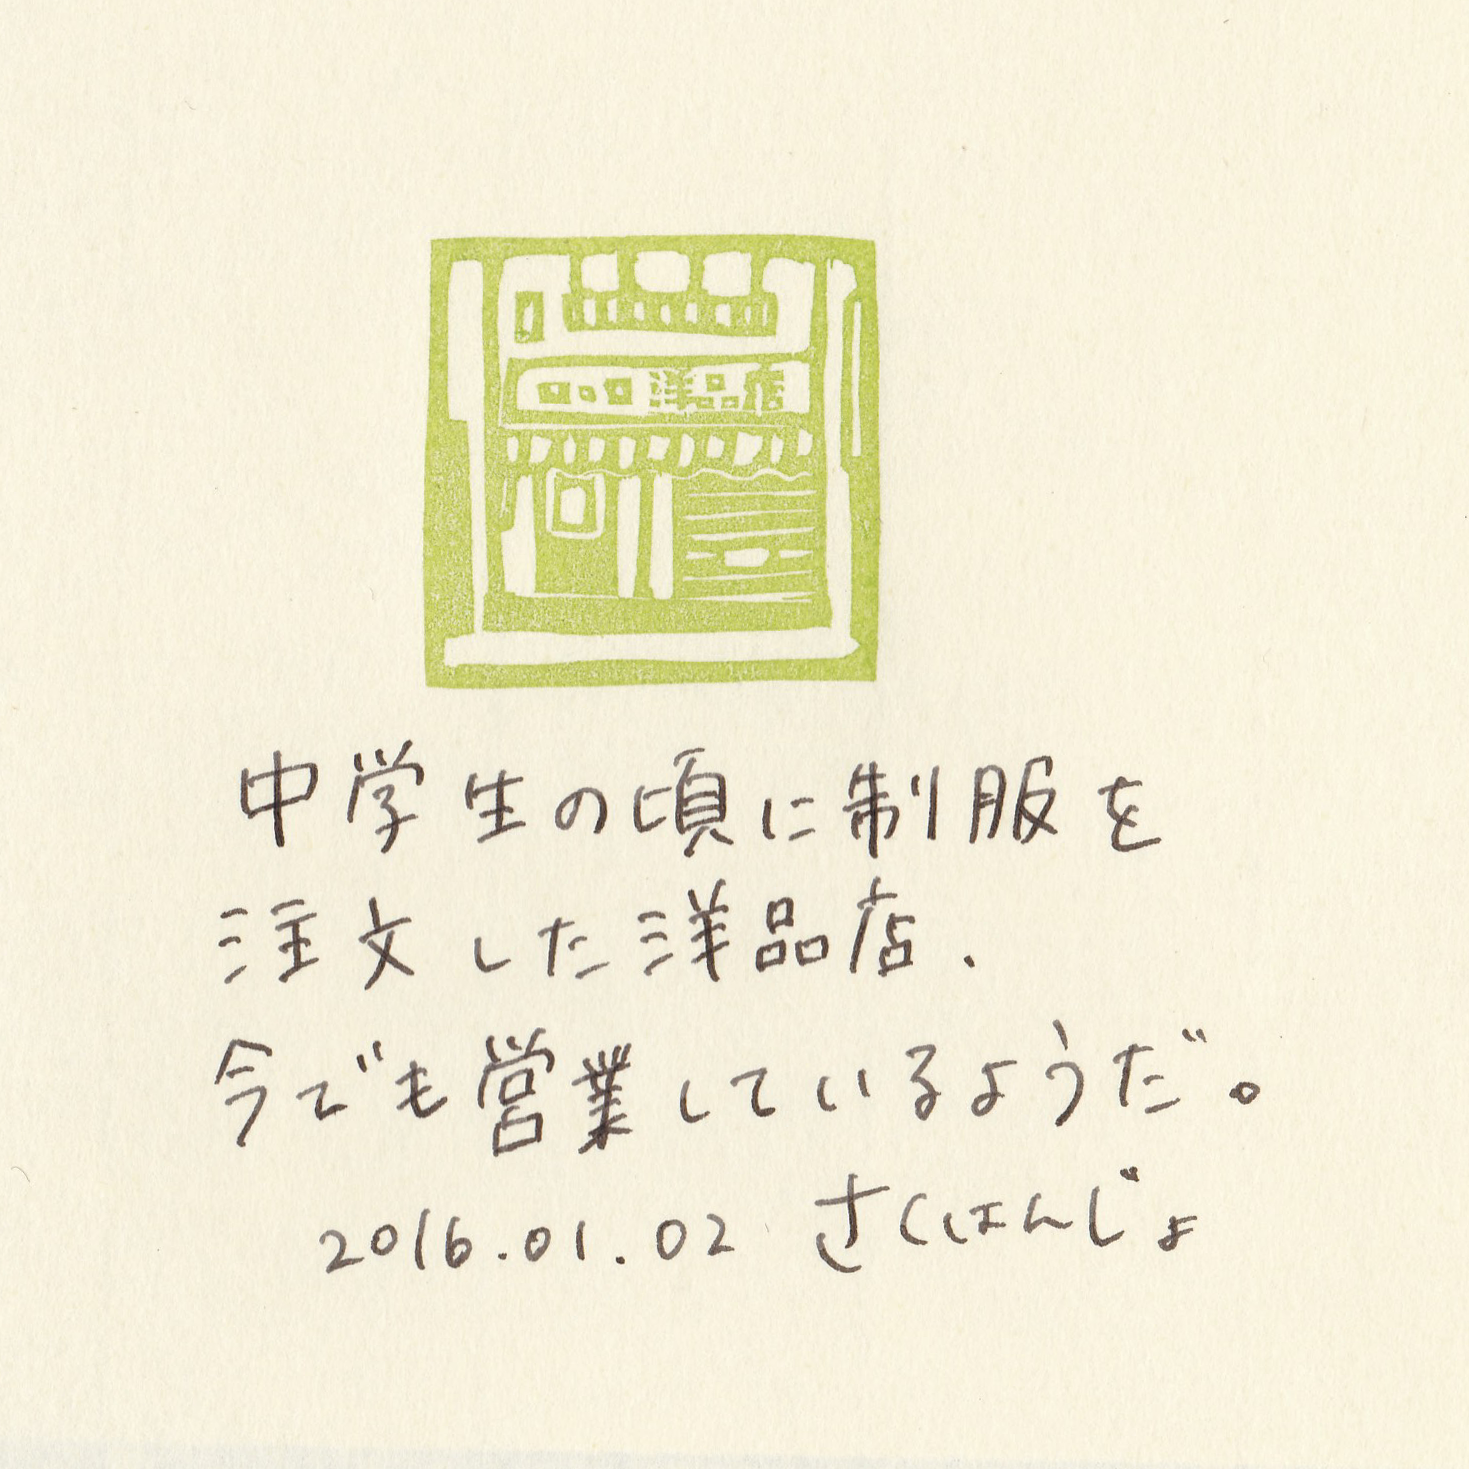 洋品店
中学生の頃に制服を
注文した洋品店.
今でも営業しているようだ。
2016.01.02 さくはんじょ